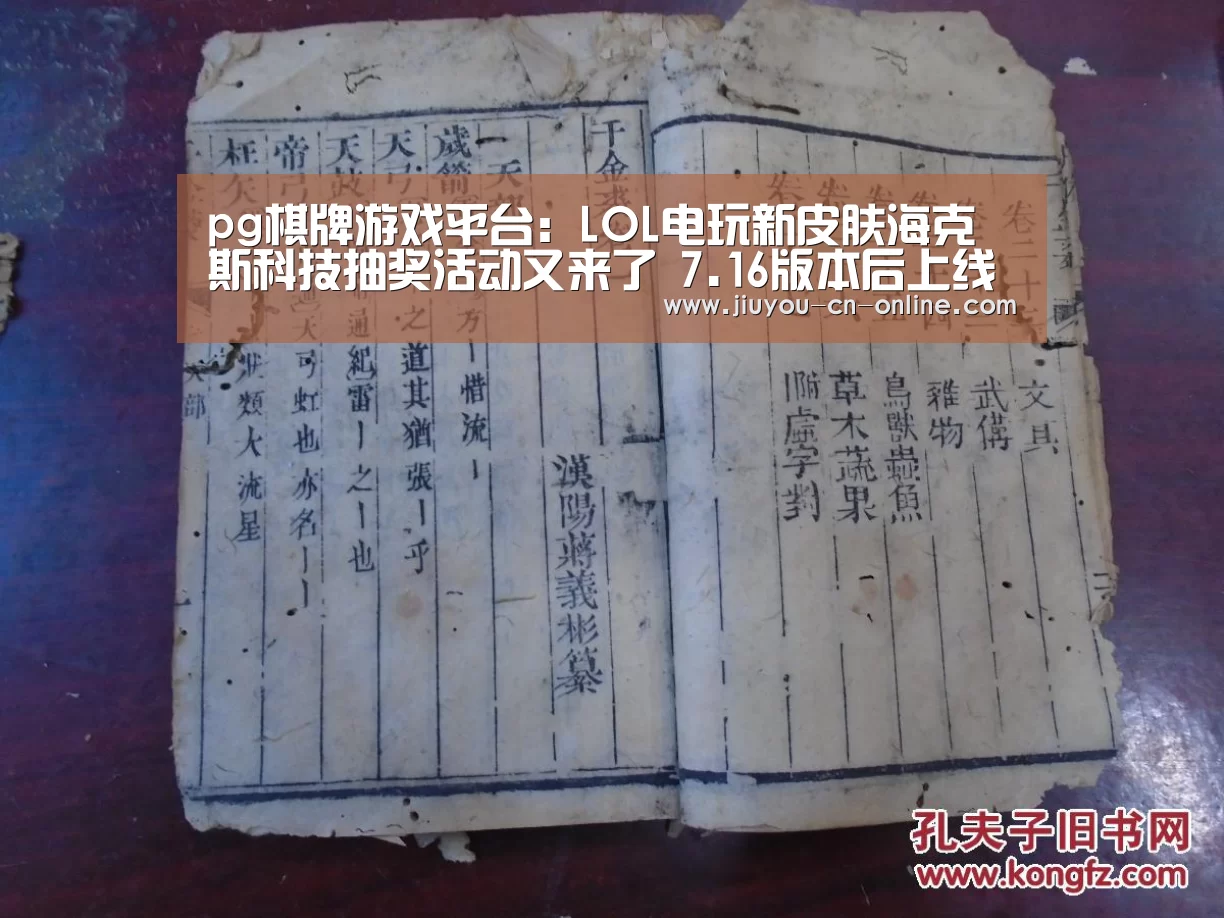 pg棋牌游戏平台: LOL电玩新皮肤海克
斯科技抽奖活动又来了 7.16版本后上线
www.jiuyou-cn-online.com
卷二十
文具
武備
雜物
鳥獸蟲魚
草木蔬果
附虛字對
千金
漢陽蔣義彬纂
一天部
方一惜流一
歲箭
天弓
之道其猶張一乎
天鼓
通紀雷一之一也
帝弓
天弓虹也亦名一一
枉矢
狀類大流星
部
孔夫子旧书网
www.kongfz.com